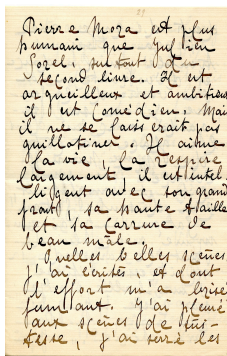 Pierre Moza est plus
humain que Julien
Sorel, surtout du
second livre. Il est
orgueilleux et ambitieux
il est comédien; Mais
il ne se laisserait pas
guillotiner. Il aime
la vie, la respire
largement, il est intel-
ligent avec son grand
front, sa haute taille
et sa carrure de
beau mâle.
Quelles belles scènes
j'ai écrites, et dont
l'effort m'a brisé
J'ai pleuré
aux scènes de tris-
tesse, j'ai serré les